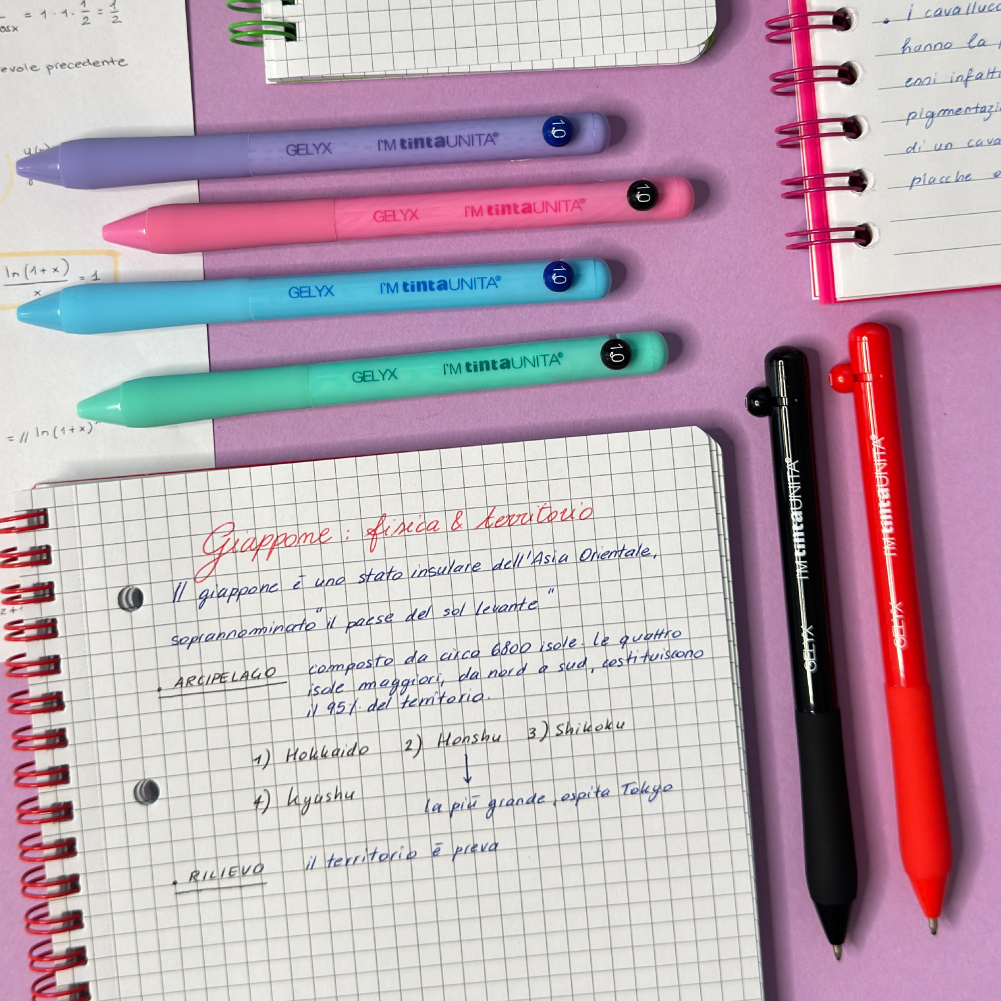 = 1 · 1 · 1/2 = 1/2
evole precedente
ln(1+x)/x = 1
= // ln(1+x)
. i cavallucc
hanno la
enni infatti
pigmentazi
di un cava
placche e
GELYX I'M tintaUNITA® 1.0
GELYX I'M tintaUNITA® 1.0
GELYX I'M tintaUNITA® 1.0
GELYX I'M tintaUNITA® 1.0
GELYX I'M tintaUNITA®
GELYX I'M tintaUNITA®
Giappone : fisica & territorio
Il giappone è uno stato insulare dell'Asia Orientale,
soprannominato "il paese del sol levante"
. ARCIPELAGO composto da circa 6800 isole. le quattro
isole maggiori, da nord a sud, costituiscono
il 95% del territorio.
1) Hokkaido 2) Honshu 3) Shikoku
↓
4) Kyushu la più grande, ospita Tokyo
. RILIEVO il territorio è preva